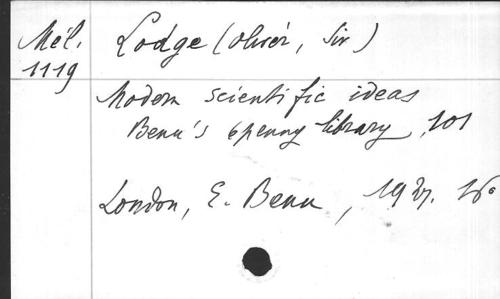 Mél. Lodge (Oliver, Sir)
1119
Modern scientific ideas
Benn's 6penny library, 101
London, E. Benn, 1927. 16°